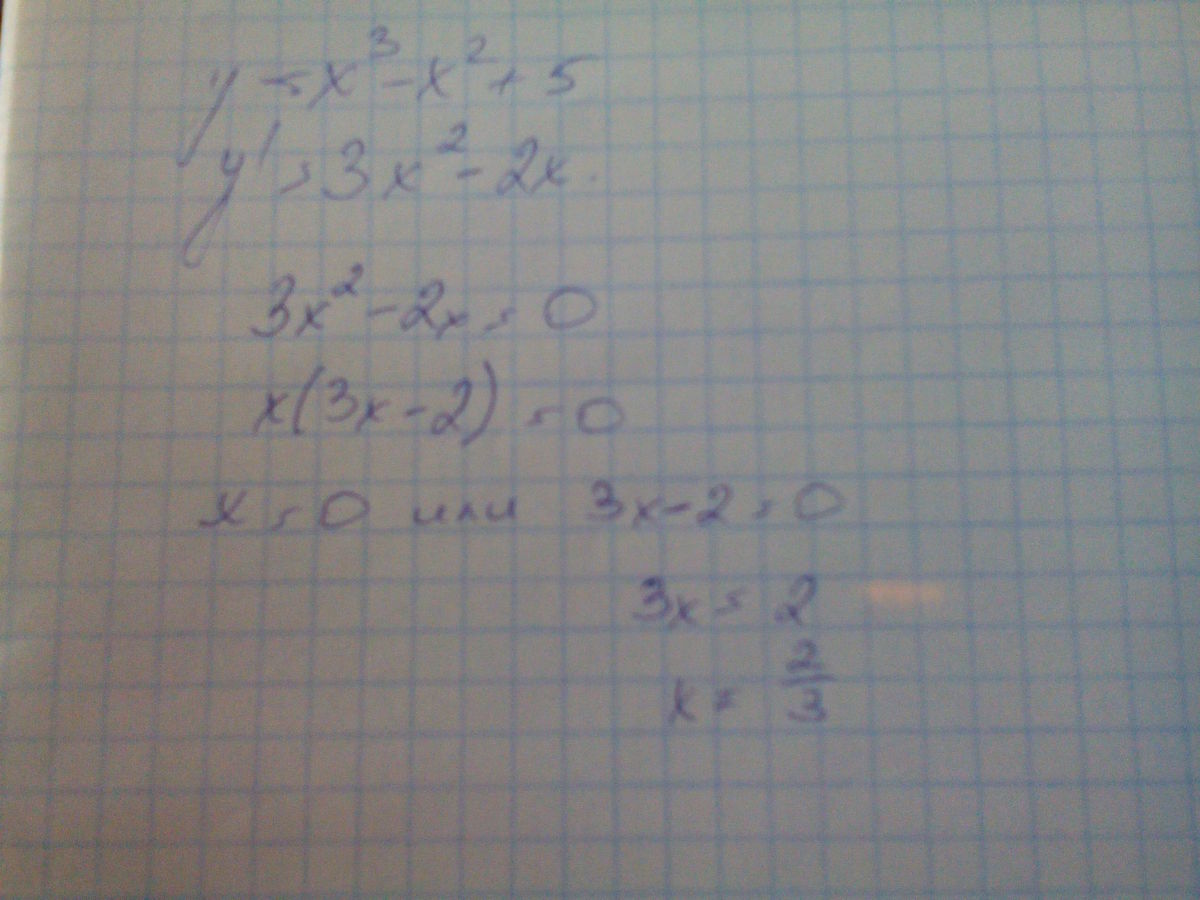 y = x³ - x² + 5
y' = 3x² - 2x.
3x² - 2x = 0
x(3x - 2) = 0
x = 0 или 3x - 2 = 0
3x = 2
x = 2/3